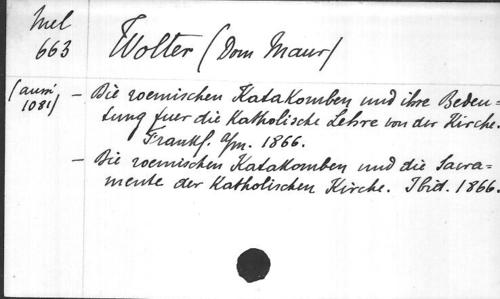 Mel
663
Wolter (Dom Maur)
(aussi
1081)
- Die roemischen Katakomben und ihre Bedeu-
tung fuer die Katholische Lehre von der Kirche.
Frankf. a/m. 1866.
- Die roemischen Katakomben und die Sacra-
mente der Katholischen Kirche. Ibid. 1866.